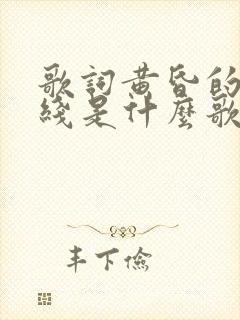 歌詞黃昏的
綫是什麼歌
丰下儉